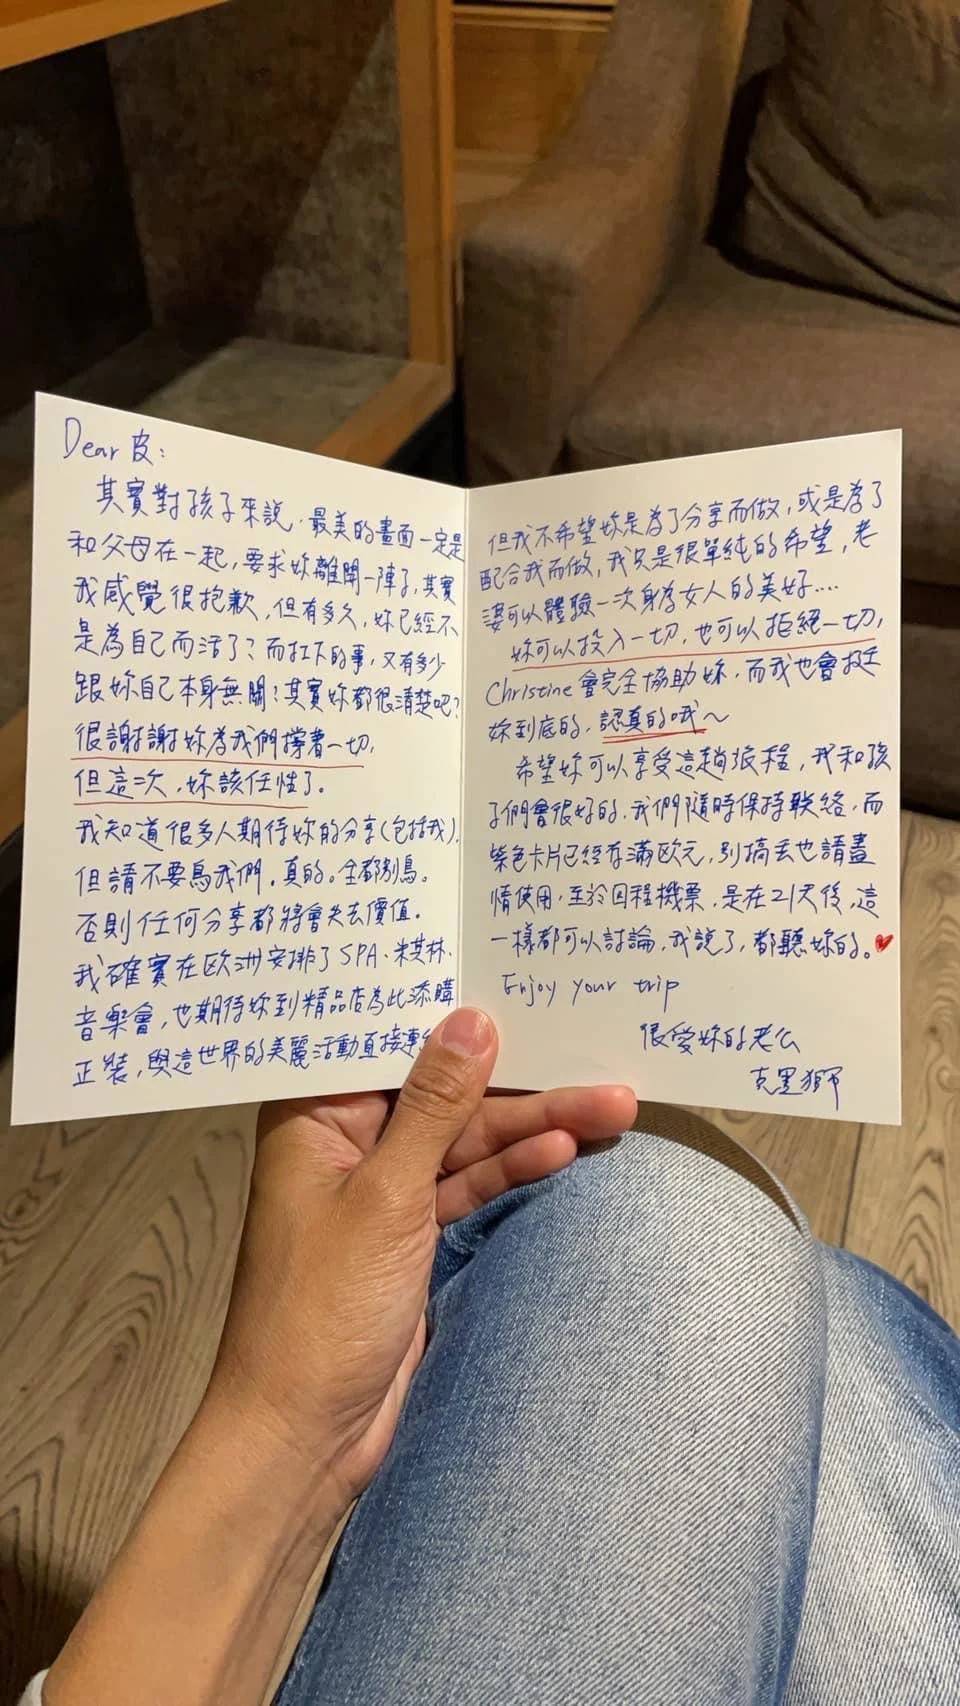 Dear 皮:
其實對孩子來說,最美的畫面一定是
和父母在一起,要求妳離開一陣子,其實
我感覺很抱歉,但有多久,妳已經不
是為自己而活了?而扛下的事,又有多少
跟妳自己本身無關?其實妳都很清楚吧?
很謝謝妳為我們撐著一切,
但這次,妳該任性了。
我知道很多人期待妳的分享(包括我),
但請不要鳥我們。真的。全都別鳥。
否則任何分享都將會失去價值。
我確實在歐洲安排了SPA、米其林、
音樂會,也期待妳到精品店為此添購
正裝,與這世界的美麗活動直接連
但我不希望妳是為了分享而做,或是為了
配合我而做,我只是很單純的希望,老
婆可以體驗一次身為女人的美好....
妳可以投入一切,也可以拒絕一切,
Christine會完全協助妳,而我也會挺
妳到底的,認真的哦~
希望妳可以享受這趟旅程,我和孩
子們會很好的,我們隨時保持聯絡,而
紫色卡片已經存滿歐元,別搞丟也請盡
情使用,至於回程機票,是在21天後,這
一樣都可以討論,我說了,都聽妳的。❤
Enjoy your trip
很愛妳的老公
克里獅